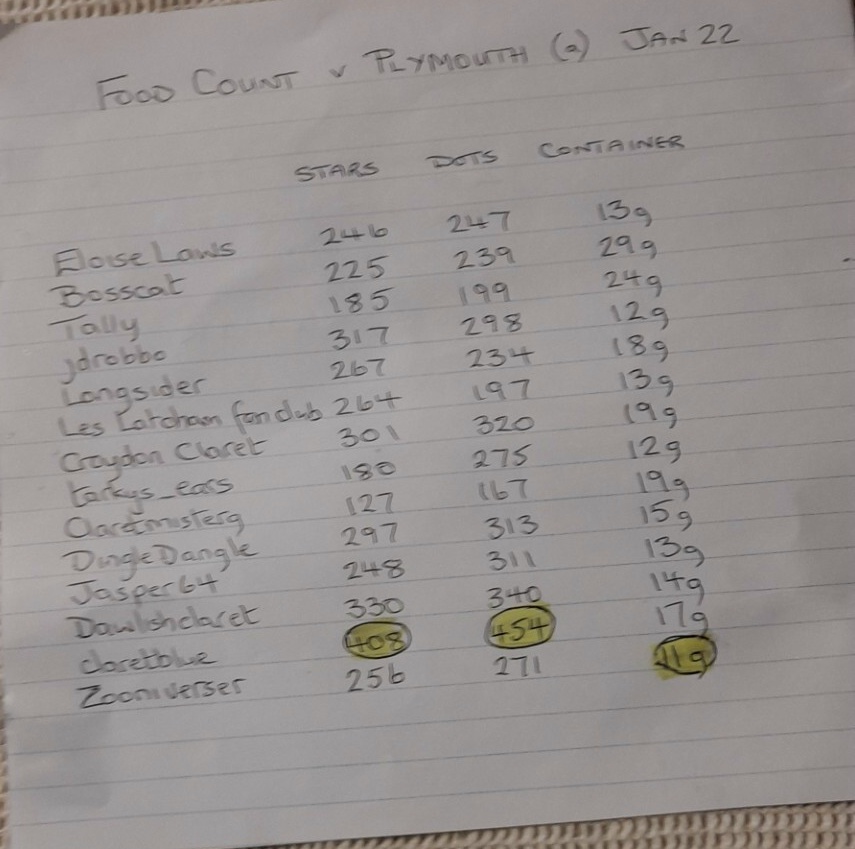 FOOD COUNT v PLYMOUTH (a) JAN 22
STARS DOTS CONTAINER
Eloise Laws 246 247 13g
Bosscat 225 239 29g
Tally 185 199 24g
jdrobbo 317 298 12g
Longsider 267 234 18g
Les Latcham fan club 264 197 13g
Croydon Claret 301 320 19g
tarkys_ears 180 275 12g
Claretmisterg 127 167 19g
DingleDangle 297 313 15g
Jasper64 248 311 13g
Dawlishclaret 330 340 14g
claretblue 408 454 17g
Zooniverser 256 271 11g